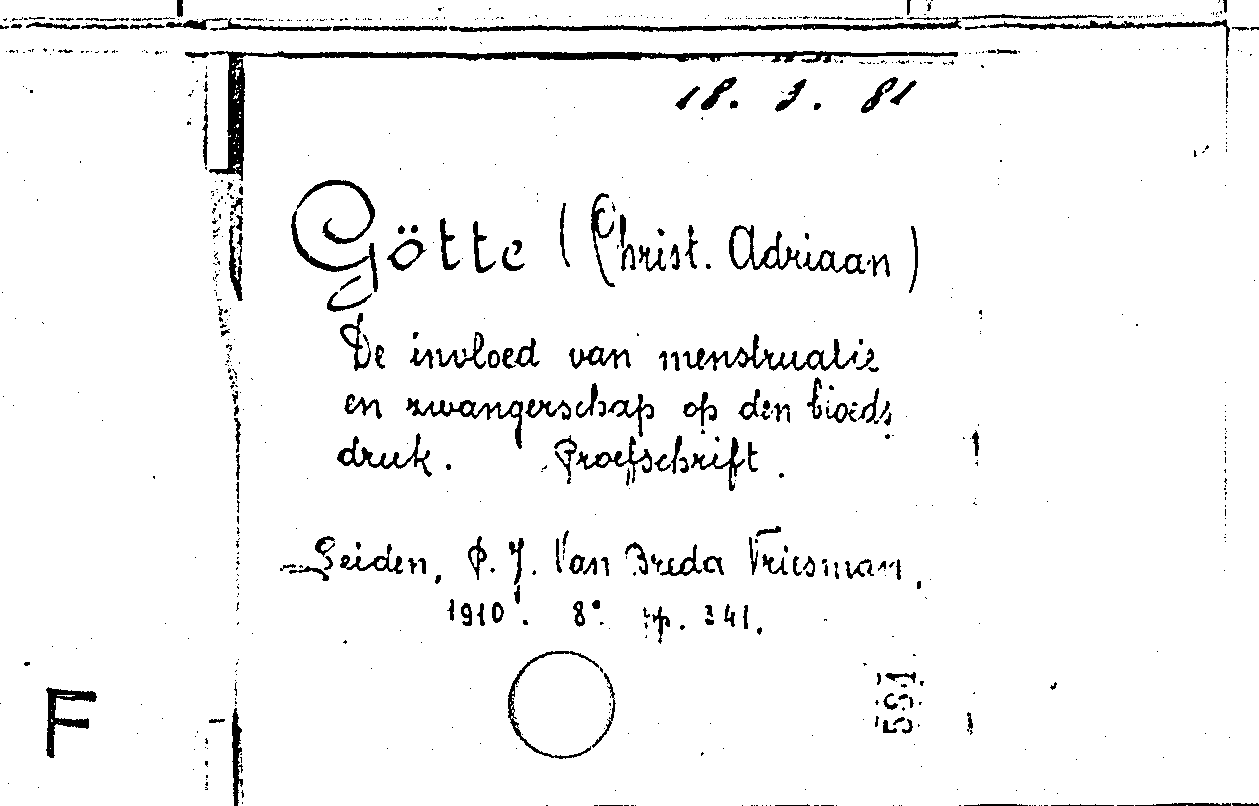 18. 3. 81
Götte (Christ. Adriaan)
De invloed van menstruatie
en zwangerschap op den bloeds
druk. Proefschrift.
Leiden, P. J. Van Breda Vriesman,
1910. 8° pp. 341.
F